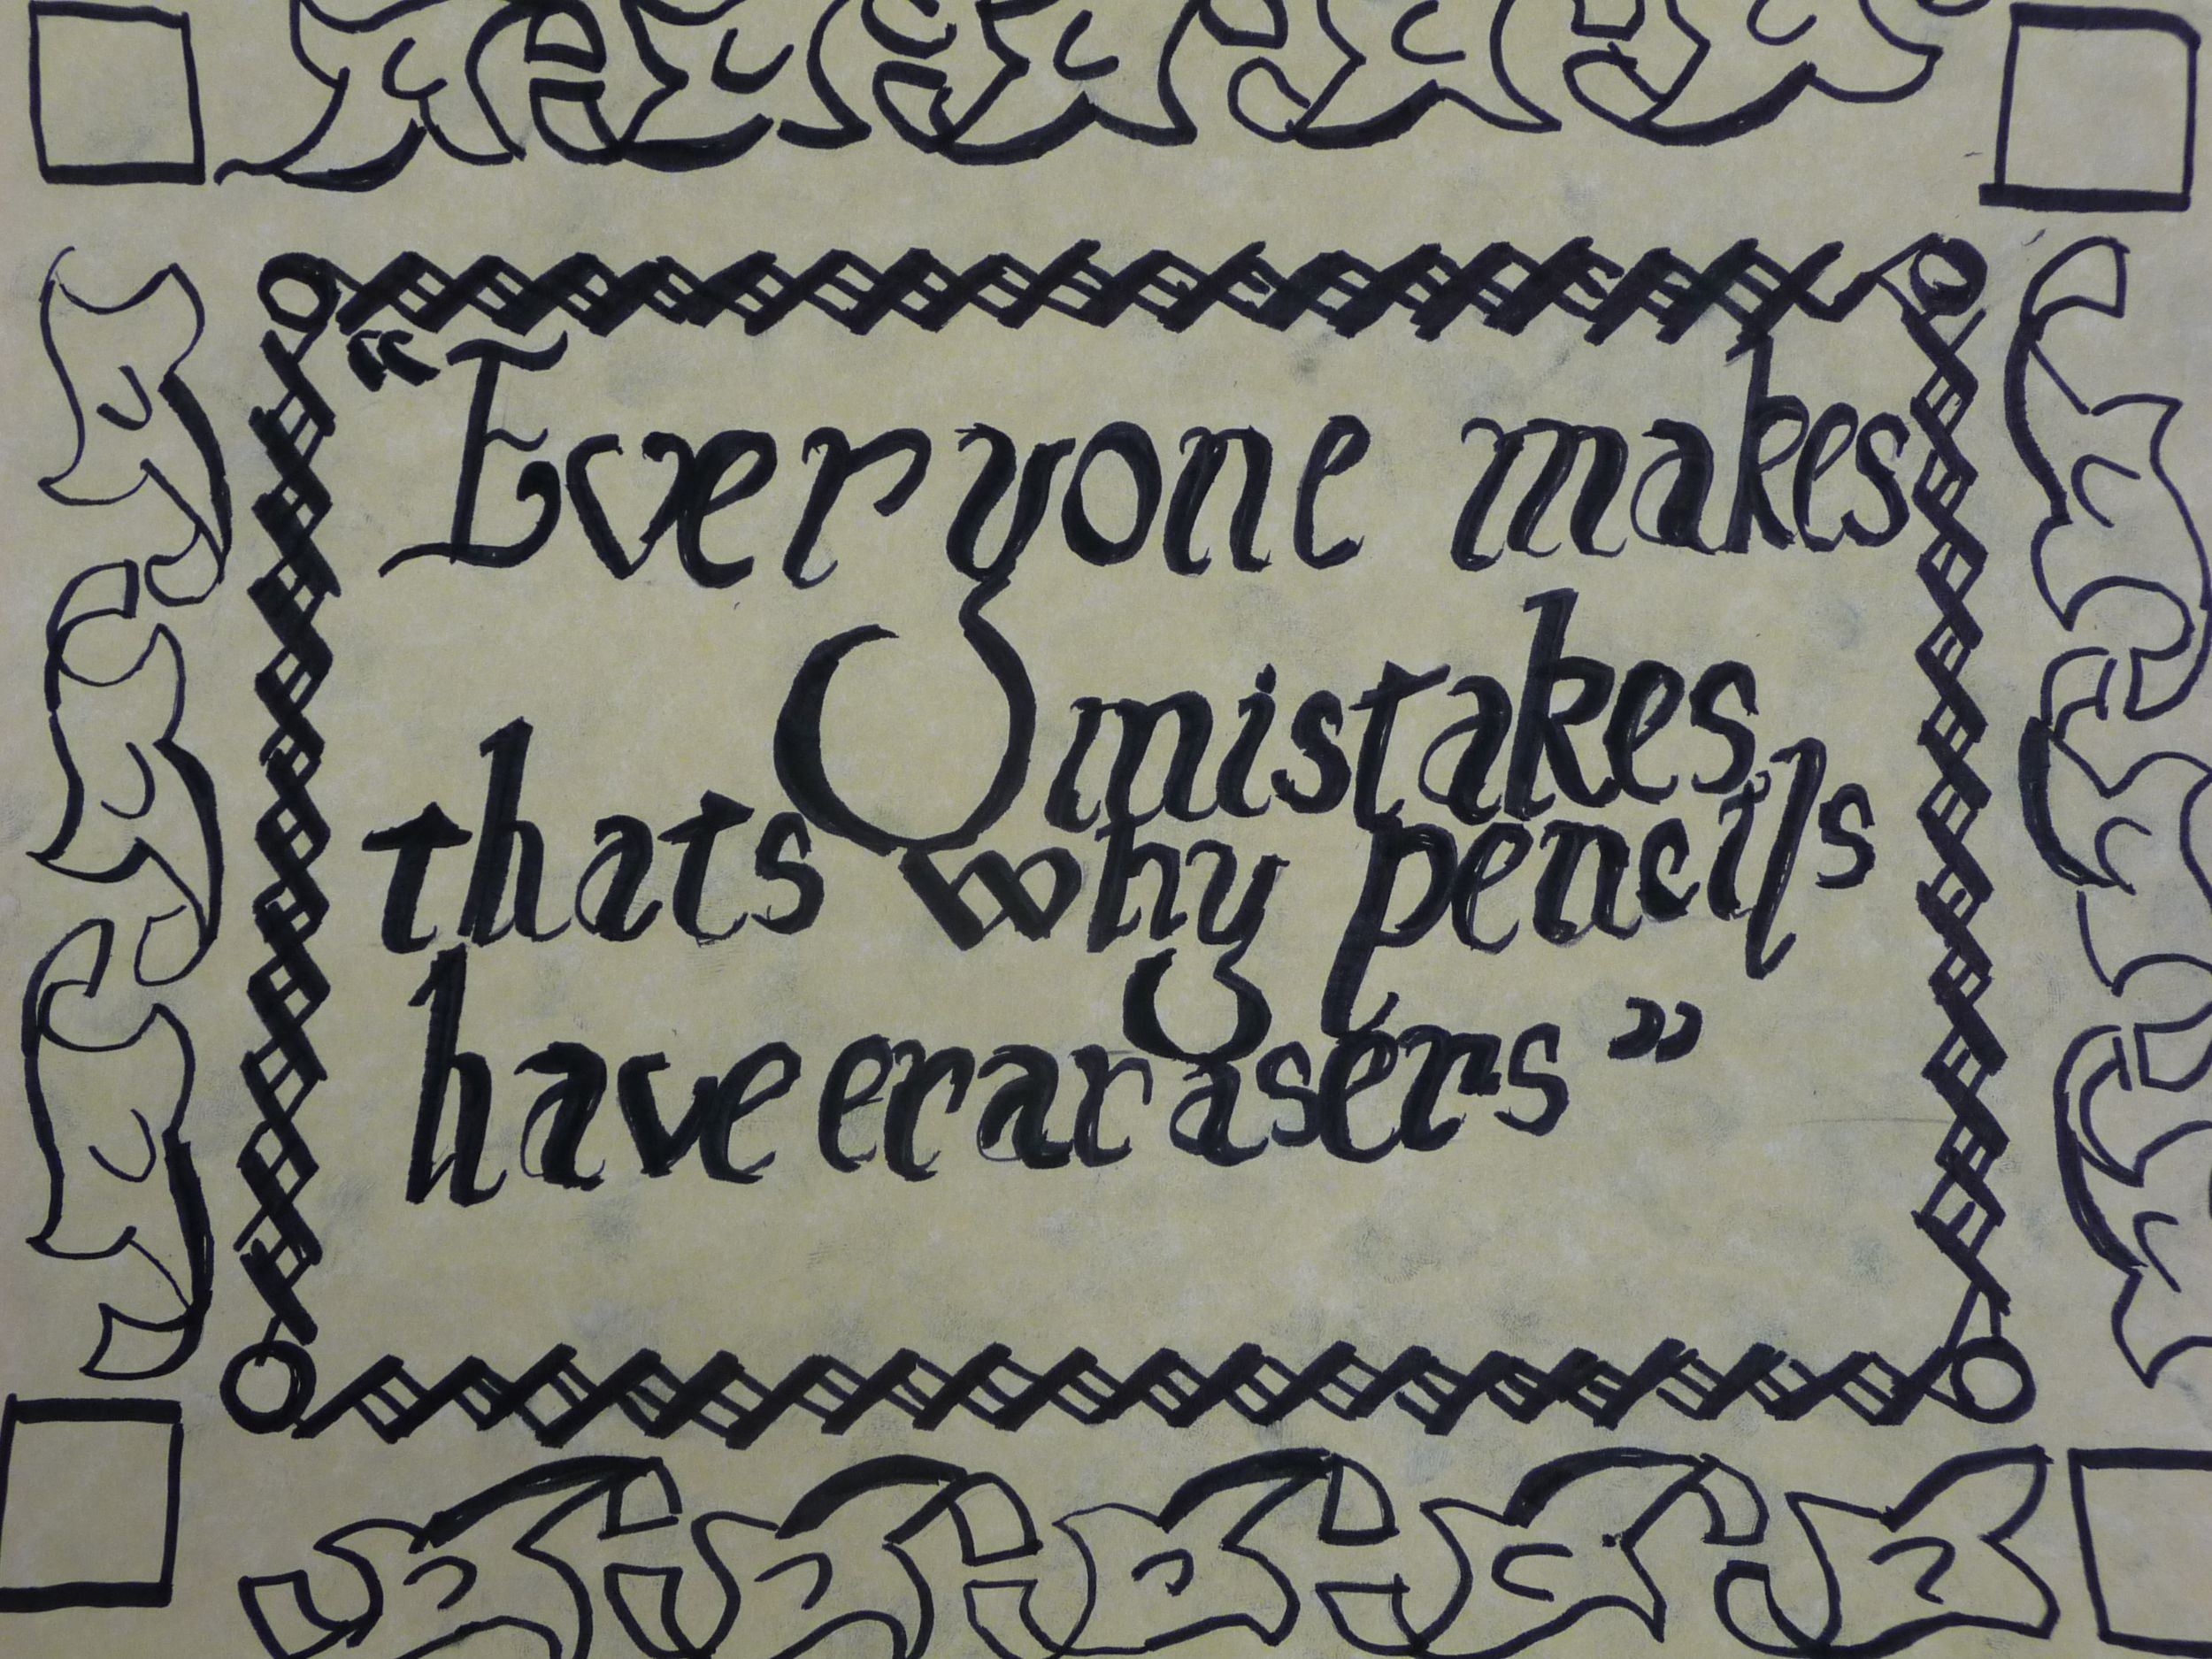 “Everyone makes
mistakes,
thats why pencils
have erarasers”